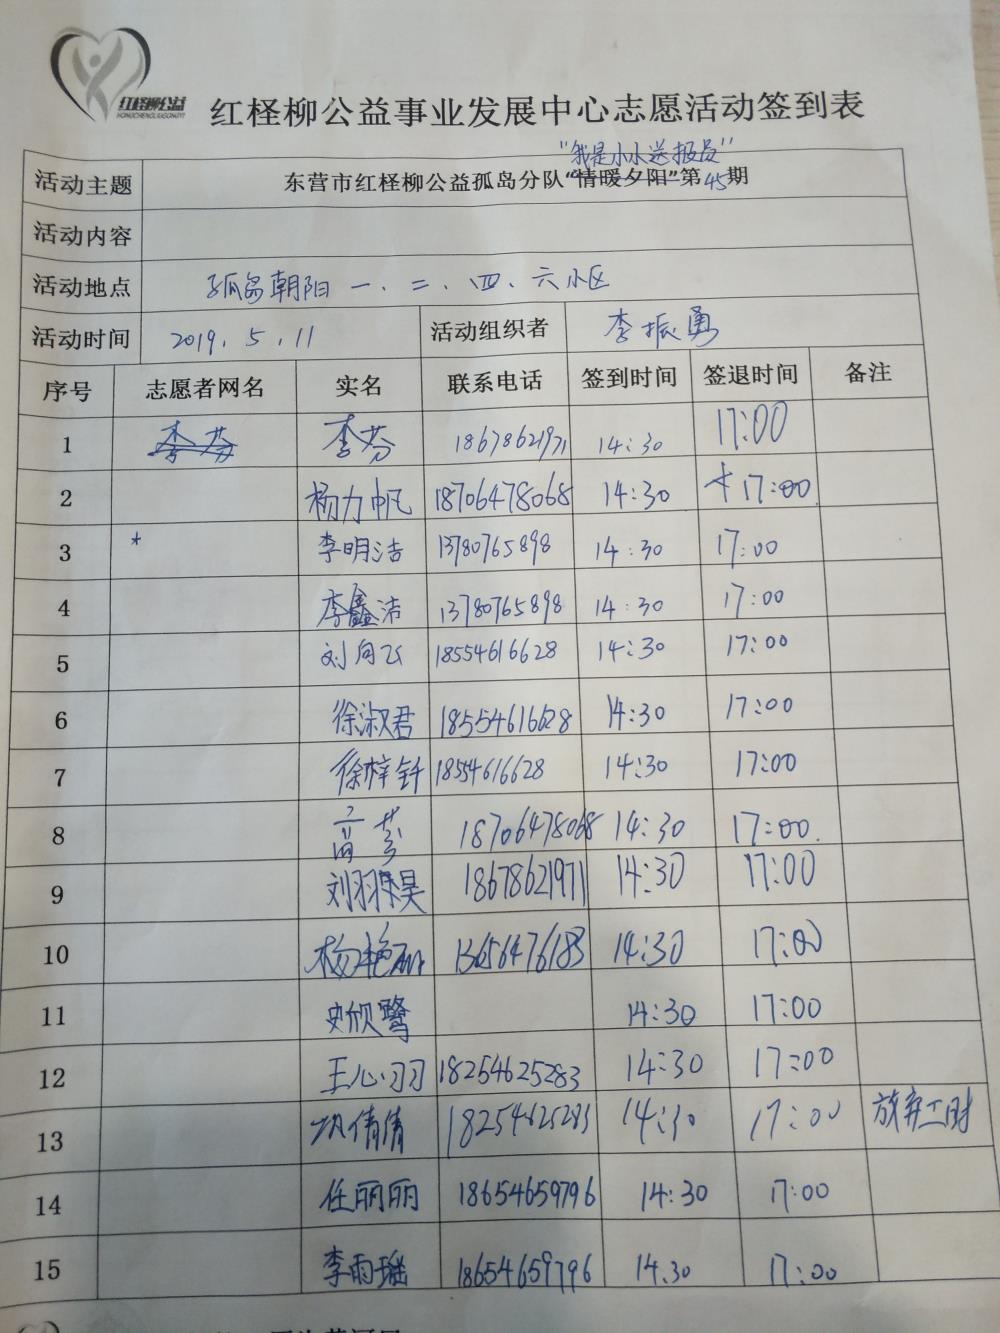 红柽柳公益
HONGCHENGLIUGONGYI
红柽柳公益事业发展中心志愿活动签到表
"我是小小送报员"
活动主题 东营市红柽柳公益孤岛分队"情暖夕阳"第45期
活动内容
活动地点 孤岛朝阳一、二、四、六小区
活动时间 2019.5.11 活动组织者 李振勇
序号 志愿者网名 实名 联系电话 签到时间 签退时间 备注
1 李芬 李芬 18678621971 14:30 17:00
2 杨力帆 18706478068 14:30 17:00
3 * 李明洁 13780765898 14:30 17:00
4 李鑫洁 13780765898 14:30 17:00
5 刘向飞 18554616628 14:30 17:00
6 徐淑君 18554616628 14:30 17:00
7 徐梓钎 18554616628 14:30 17:00
8 高芬 18706478068 14:30 17:00
9 刘羽昊 18678621971 14:30 17:00
10 杨艳 13656476183 14:30 17:00
11 史欣鹭 14:30 17:00
12 王心羽 18254625283 14:30 17:00
13 巩倩倩 18254625283 14:30 17:00 放弃工时
14 任丽丽 18654659796 14:30 17:00
15 李雨瑶 18654659796 14:30 17:00